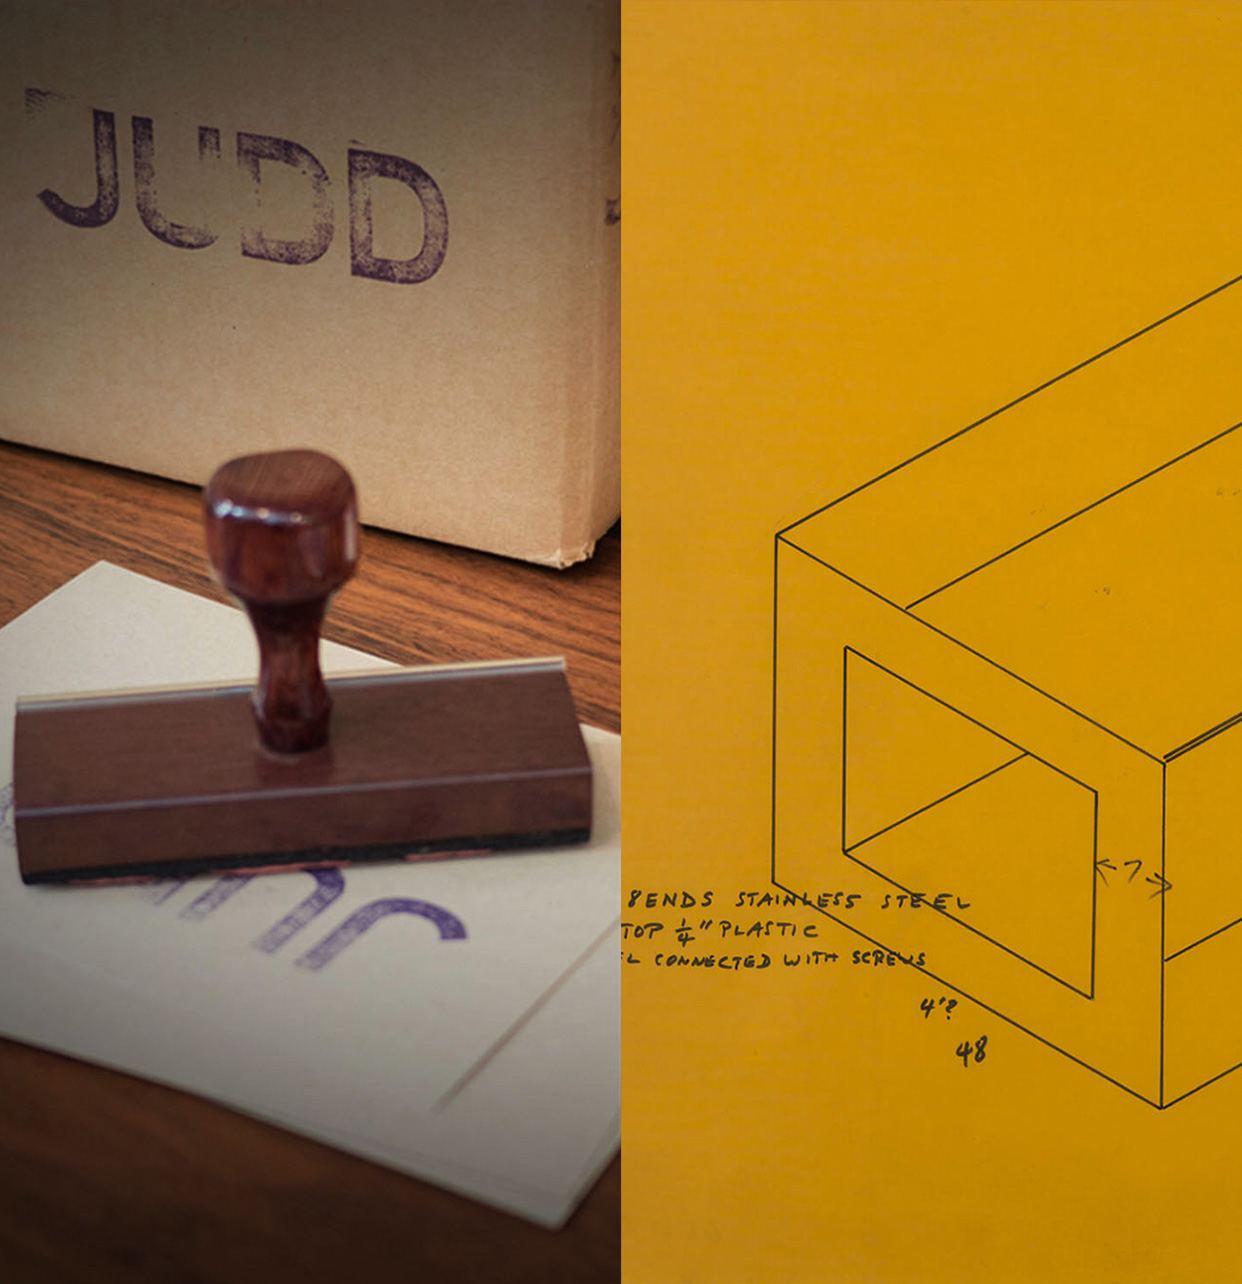 JUDD
JUD
7
8 ENDS STAINLESS STEEL
TOP 1/4" PLASTIC
L CONNECTED WITH SCREWS
4'?
48